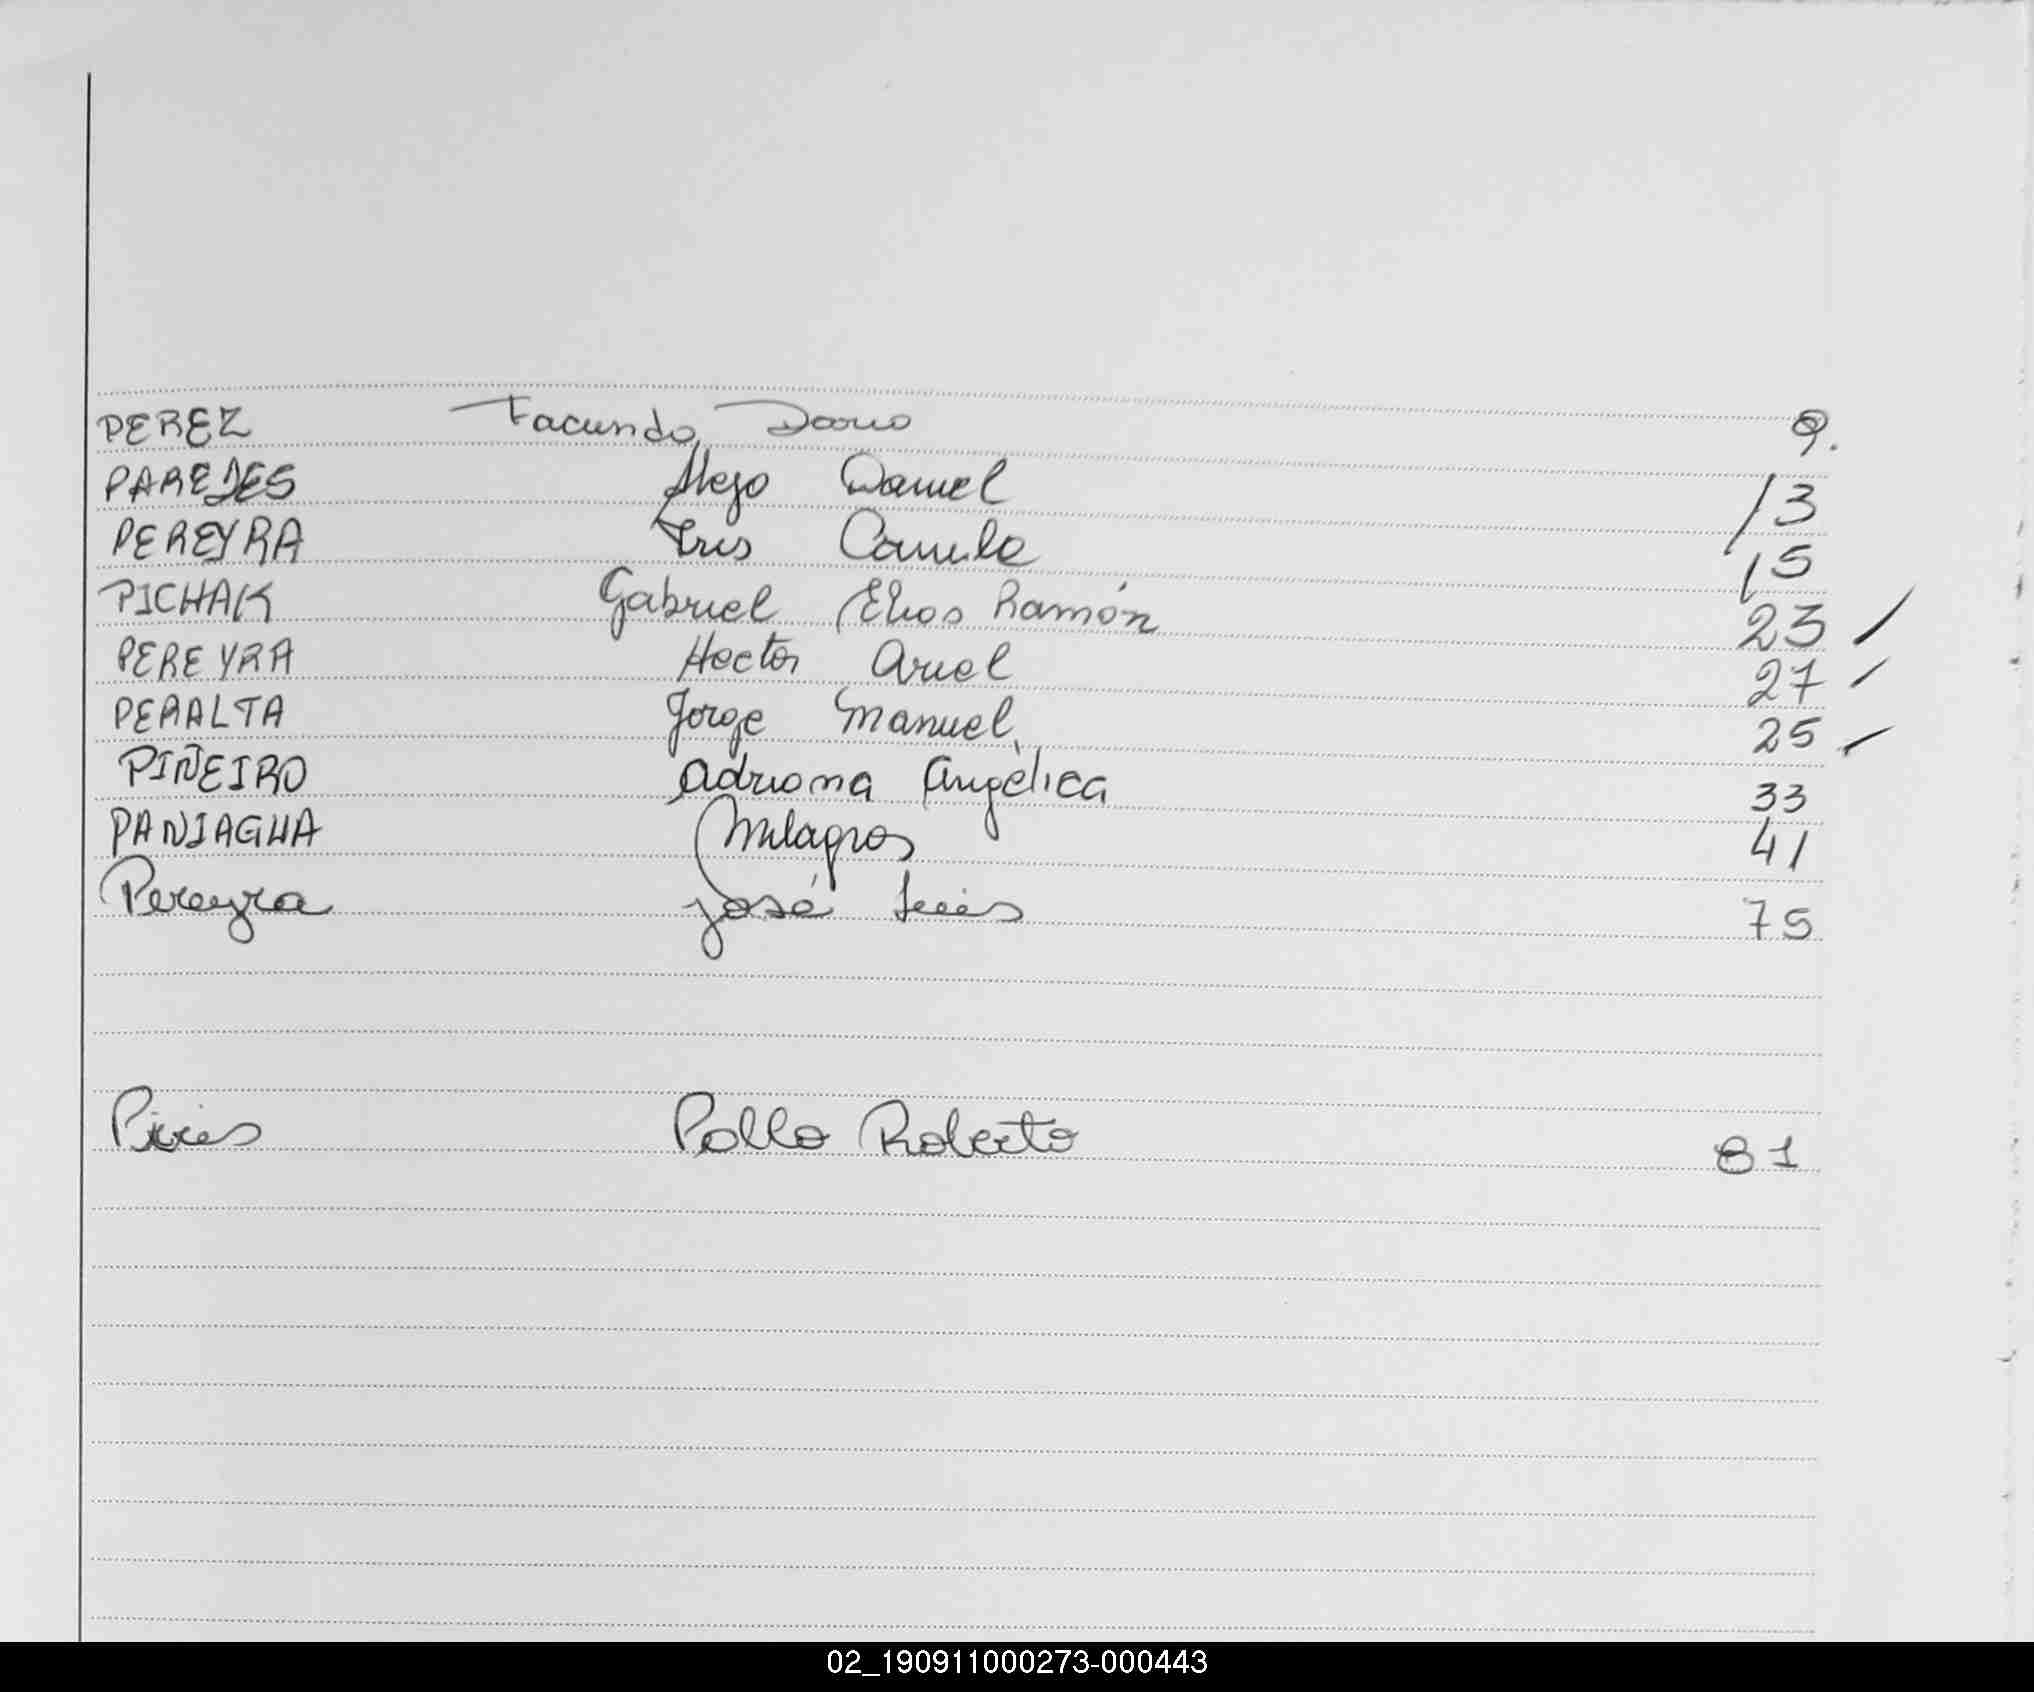 PEREZ Facundo Dario 9.
PAREDES Alejo Daniel 13
PEREYRA Iris Camila 15
PICHAK Gabriel Elias Ramón 23
PEREYRA Hector Ariel 27
PERALTA Jorge Manuel 25
PIÑEIRO Adriana Angélica 33
PANIAGUA Milagros 41
Pereyra José Luis 75
Piris Pablo Roberto 81
02_190911000273-000443